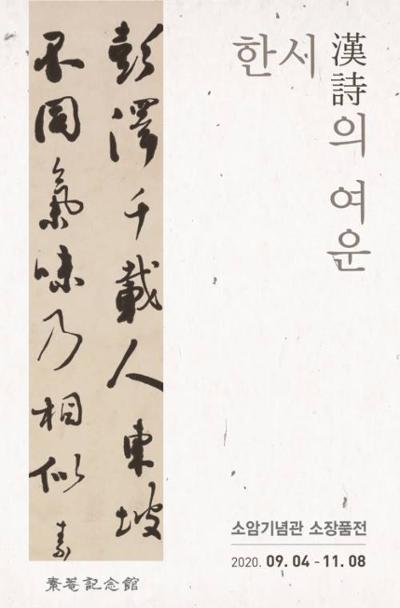 한시 漢詩의 여운
彭澤千載人東坡
不同氣味乃相似 素
소암기념관 소장품전
2020. 09. 04 - 11. 08
素菴記念館